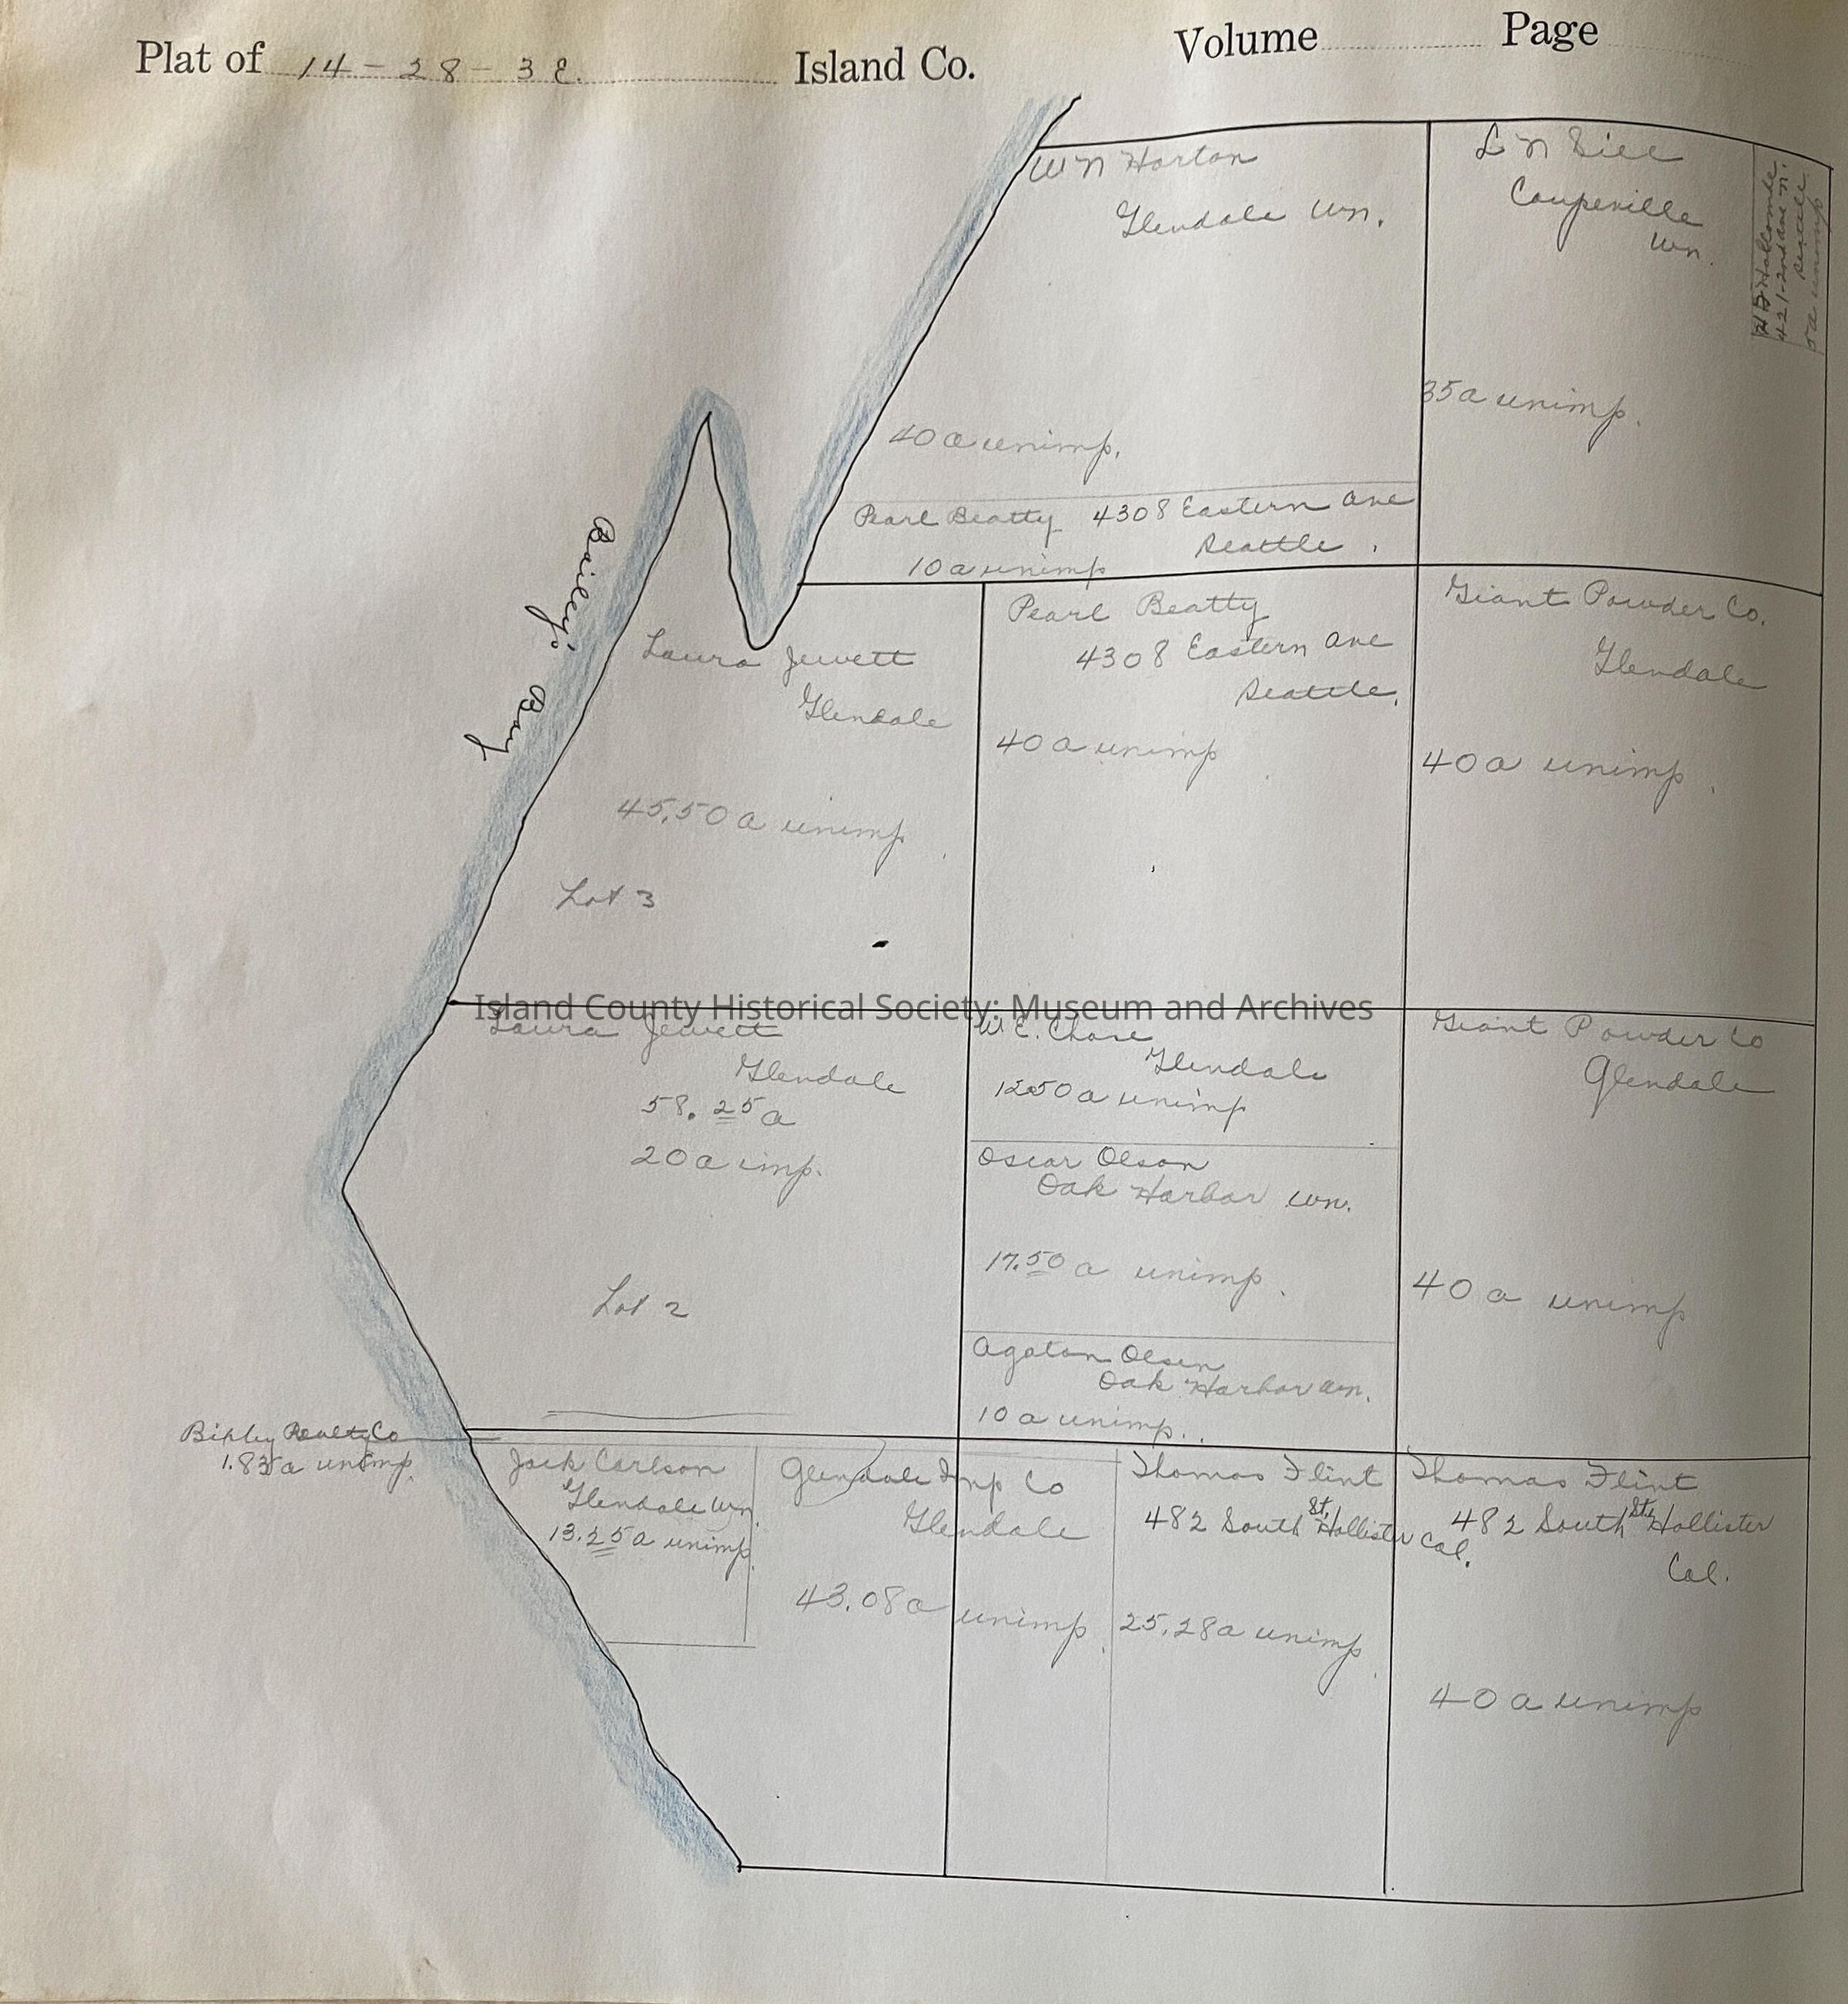 Plat of 14 - 28 - 3 E. Island Co. Volume Page
W N Horton
Glendale Wn.
40 a unimp.
L N Sill
Coupeville
Wn.
35 a unimp.
H B Holcombe
421-2nd Ave N.
Seattle
5 a unimp
Pearl Beatty 4308 Eastern Ave
Seattle.
10 a unimp
Bailey's Bay
Laura Jewett
Glendale
45.50 a unimp
Lot 3
Pearl Beatty
4308 Eastern Ave
Seattle.
40 a unimp
Giant Powder Co.
Glendale
40 a unimp.
Island County Historical Society: Museum and Archives
Laura Jewett
Glendale
58.25 a
20 a imp.
Lot 2
W E. Chase
Glendale
12.50 a unimp
Oscar Olson
Oak Harbor Wn.
17.50 a unimp.
Agaton Olsen
Oak Harbor Wn.
10 a unimp.
Giant Powder Co
Glendale
40 a unimp
Realty Co
a unimp.
Jack Carlson
Glendale Wn.
13.25 a unimp.
Glendale Imp Co
Glendale
43.08 a unimp.
Thomas Flint
482 South St, Hollister Cal.
25.28 a unimp.
Thomas Flint
482 South St, Hollister
Cal.
40 a unimp